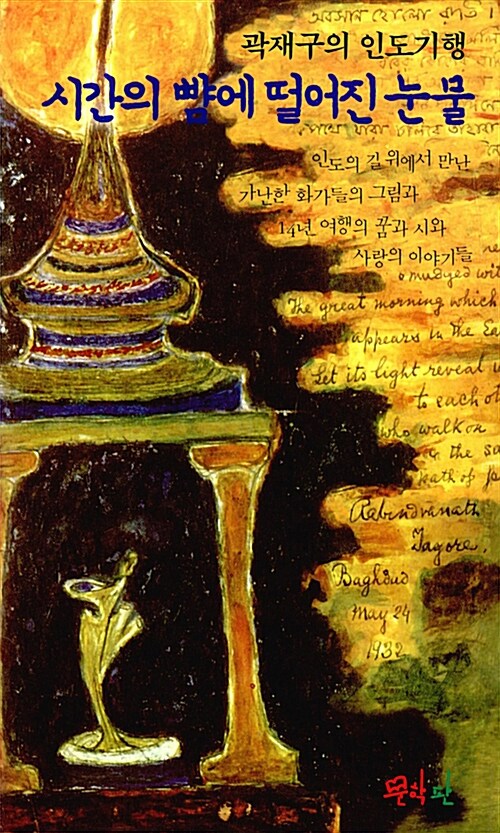 곽재구의 인도기행
시간의 뺨에 떨어진 눈물
인도의 길 위에서 만난
가난한 화가들의 그림과
14년 여행의 꿈과 시와
사랑의 이야기들
The great morning which
appears in the Ea
Let its light reveal
to each ot
who walk on
the sa
path of p
Rabindranath
Tagore.
Baghdad
May 24
1932
문학판